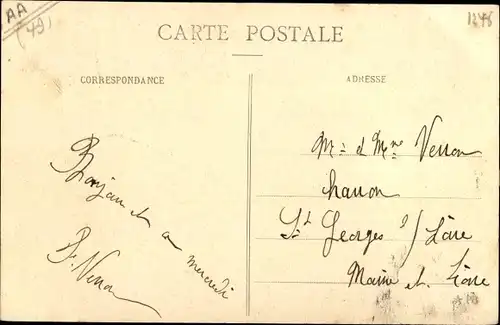 AA
(49)
1248
CARTE POSTALE
CORRESPONDANCE
ADRESSE
Bonjour et a mercredi
P. Verron
Mr et Mme Verron
charron
St Georges s/ Loire
Maine et Loire